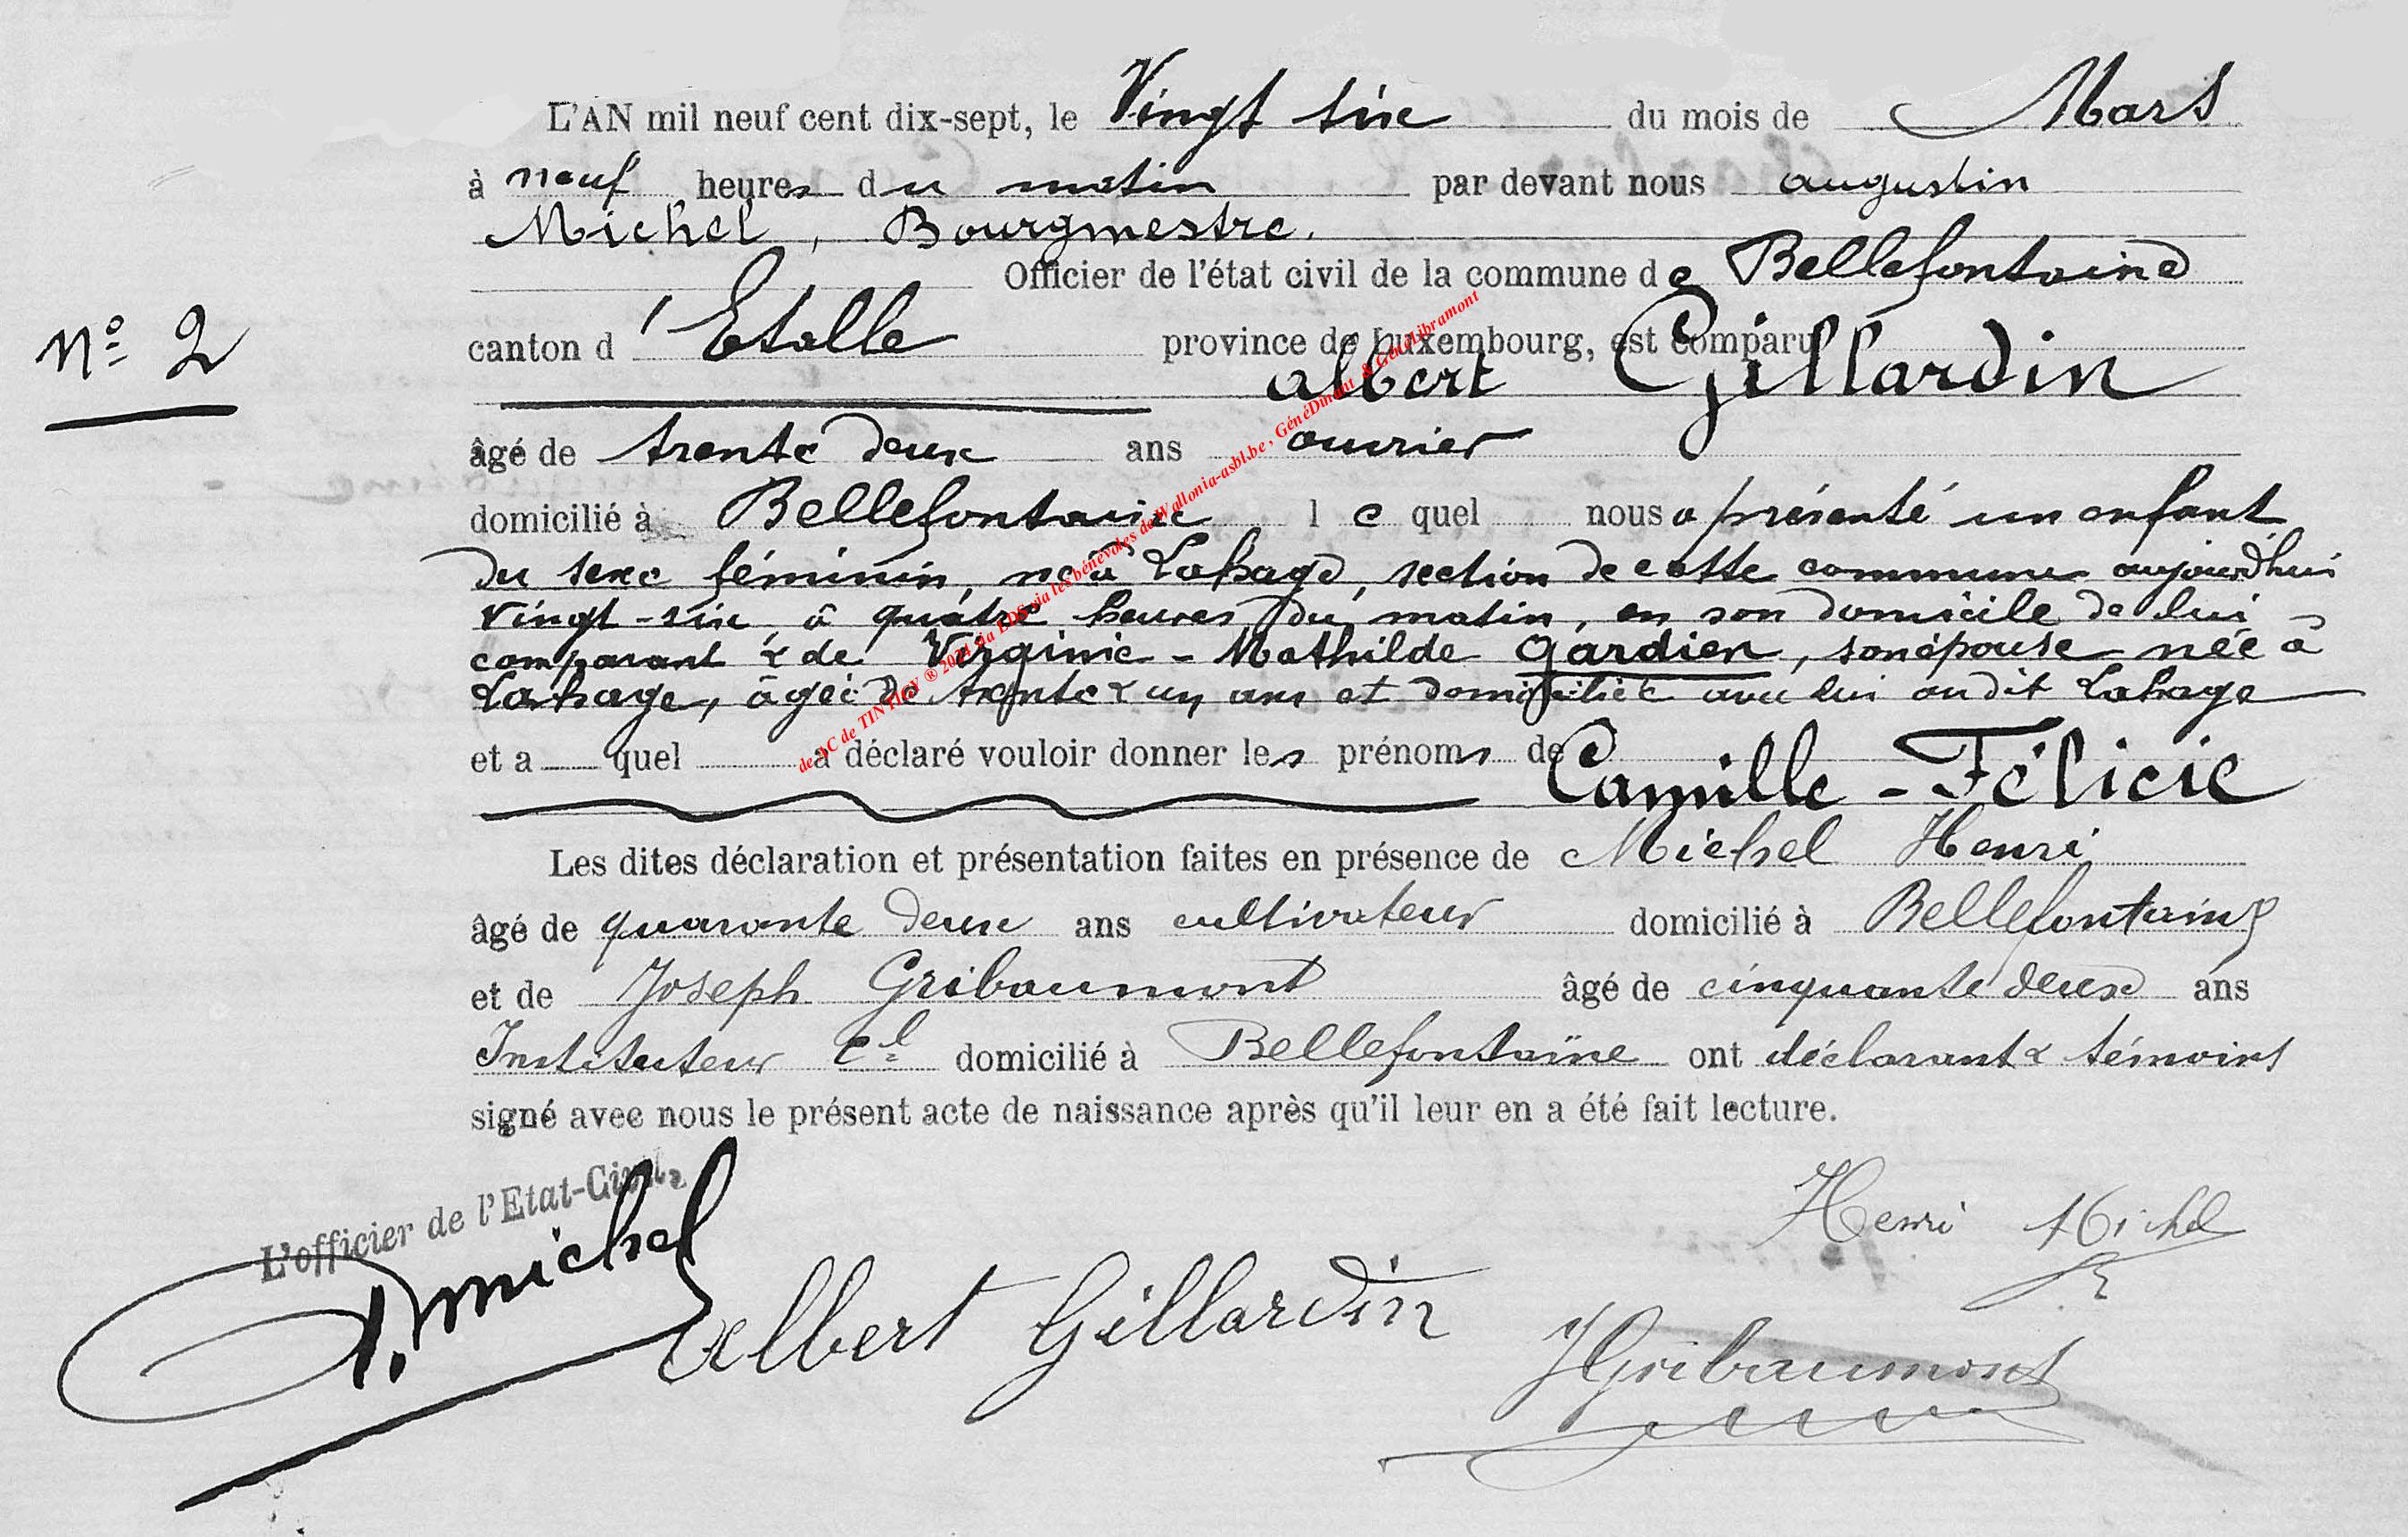 L'AN mil neuf cent dix-sept, le Vingt six du mois de Mars
à neuf heures du matin par devant nous augustin
Michel, Bourgmestre.
Officier de l'état civil de la commune de Bellefontaine
N° 2
canton d'Etalle province de Luxembourg, est comparu
albert Gillardin
âgé de trente deux ans ouvrier
domicilié à Bellefontaine lequel nous a présenté un enfant
du sexe féminin, né à Lahage, section de cette commune aujourd'hui
vingt-six, à quatre heures du matin, en son domicile de lui
comparant & de Virginie - Mathilde Gardien, son épouse née à
Lahage, âgée de trente & un ans et domiciliée avec lui au dit Lahage
et a quel a déclaré vouloir donner les prénoms de
Camille - Félicie
Les dites déclaration et présentation faites en présence de Michel Henri
âgé de quarante deux ans cultivateur domicilié à Bellefontaine
et de Joseph Gribaumont âgé de cinquante deux ans
Instituteur Cl domicilié à Bellefontaine ont déclarant & témoins
signé avec nous le présent acte de naissance après qu'il leur en a été fait lecture.
L'officier de l'Etat-Civil,
A. Michel
Albert Gillardin
Henri Michel
J Gribaumont
de AC de TINTIGY ® 2021 via FDS via les bénévoles de Wallonia-asbl.be, GénéDinant & GénéLibramont